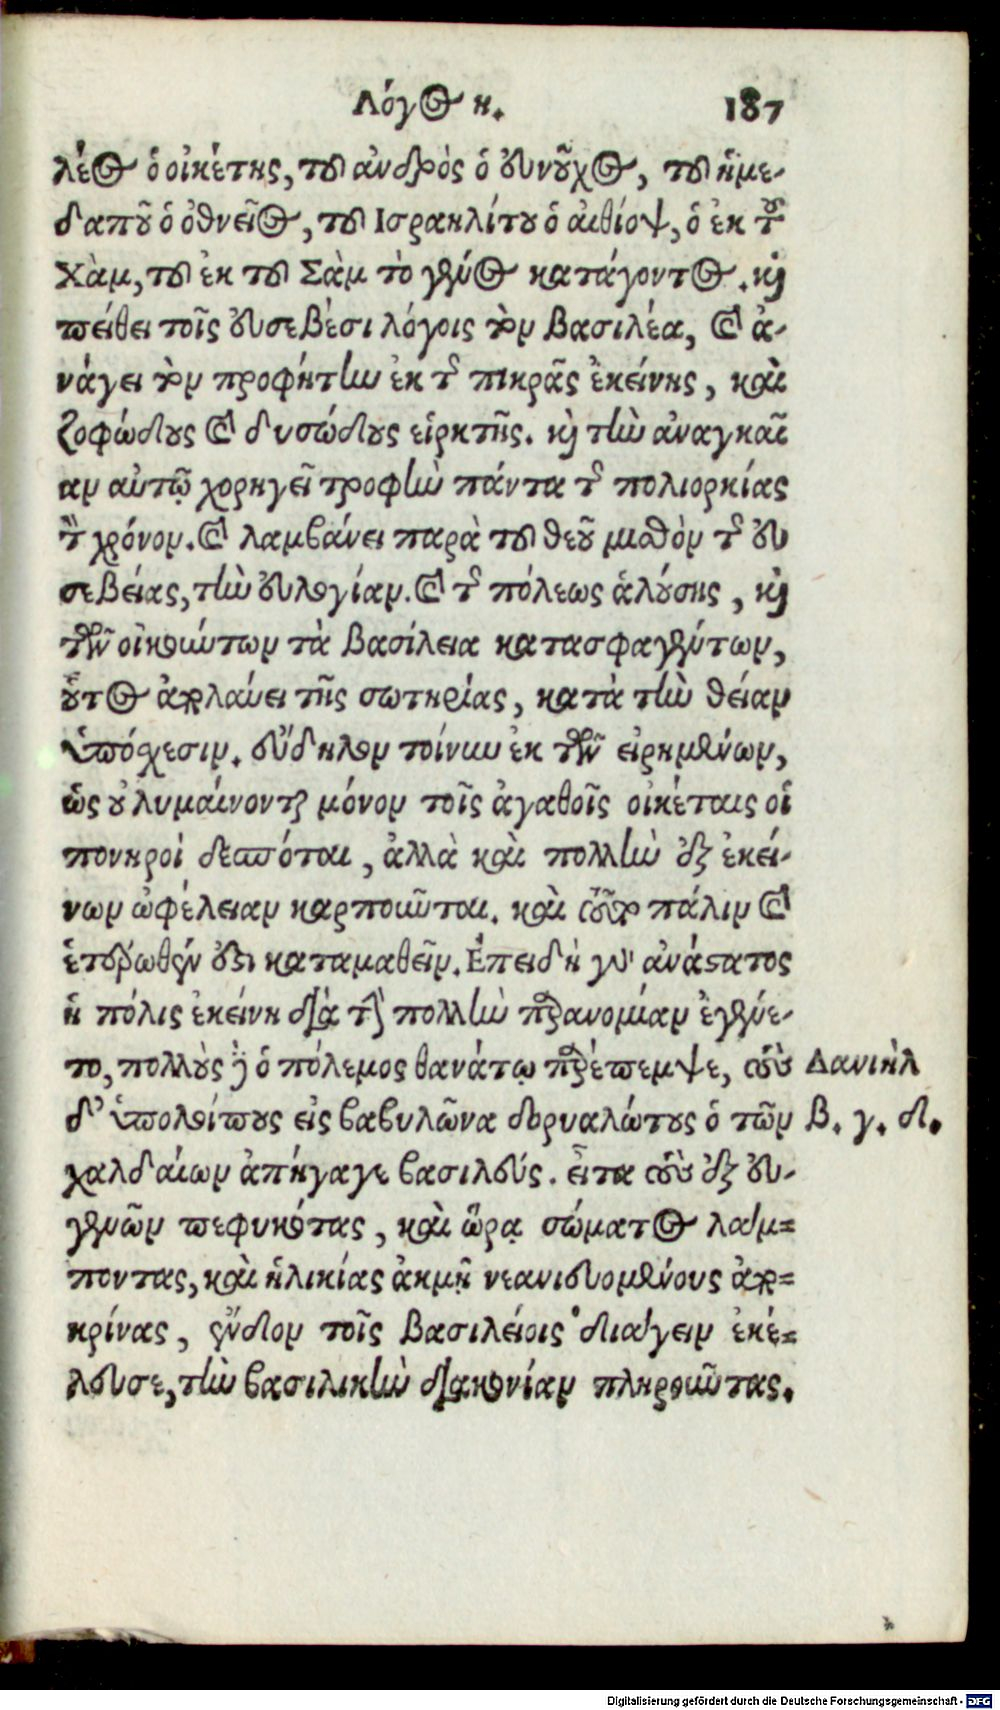 Λόγος η. 187
λέως ὁ οἰκέτης, τοῦ ἀνδρὸς ὁ εὐνοῦχος, τοῦ ἡμε-
δαποῦ ὁ ὀθνεῖος, τοῦ Ισραηλίτου ὁ αἰθίοψ, ὁ ἐκ τοῦ
Χὰμ, τοῦ ἐκ τοῦ Σὰμ τὸ γένος κατάγοντος. καὶ
πείθει τοῖς εὐσεβέσι λόγοις τὸν βασιλέα, καὶ ἀ-
νάγει τὸν προφήτην ἐκ τῆς πικρᾶς ἐκείνης, καὶ
ζοφώδους καὶ δυσώδους εἱρκτῆς. καὶ τὴν ἀναγκαῖ
αν αὐτῷ χορηγεῖ τροφὴν πάντα τῆς πολιορκίας
τὸν χρόνον. καὶ λαμβάνει παρὰ τοῦ θεοῦ μισθὸν τῆς εὐ
σεβείας, τὴν εὐλογίαν. καὶ τῆς πόλεως ἁλούσης, καὶ
τῶν οἰκούντων τὰ βασίλεια κατασφαγέντων,
οὗτος ἀπολαύει τῆς σωτηρίας, κατὰ τὴν θείαν
ὑπόσχεσιν. εὔδηλον τοίνυν ἐκ τῶν εἰρημένων,
ὡς οὐ λυμαίνονται μόνον τοῖς ἀγαθοῖς οἰκέταις οἱ
πονηροὶ δεσπόται, ἀλλὰ καὶ πολλὴν ἐξ ἐκεί-
νων ὠφέλειαν καρποῦνται. καὶ τοῦτο πάλιν καὶ
ἑτέρωθεν ἔξεστι καταμαθεῖν. Επειδὴ γὰρ ἀνάστατος
ἡ πόλις ἐκείνη διὰ τὴν πολλὴν παρανομίαν ἐγένε-
το, πολλοὺς δὲ ὁ πόλεμος θανάτῳ παρέπεμψε, τοὺς
δ' ὑπολοίπους εἰς βαβυλῶνα δορυαλώτους ὁ τῶν
χαλδαίων ἀπήγαγε βασιλεύς. εἶτα τοὺς ἐξ εὐ-
γενῶν πεφυκότας, καὶ ὥρᾳ σώματος λάμ-
ποντας, καὶ ἡλικίας ἀκμῇ νεανιευομένους ἀπο-
κρίνας, ἔνδον τοῖς βασιλείοις διάγειν ἐκέ-
λευσε, τὴν βασιλικὴν διακονίαν πληροῦντας.
Δανιὴλ
β. γ. δ.
Digitalisierung gefördert durch die Deutsche Forschungsgemeinschaft - DFG